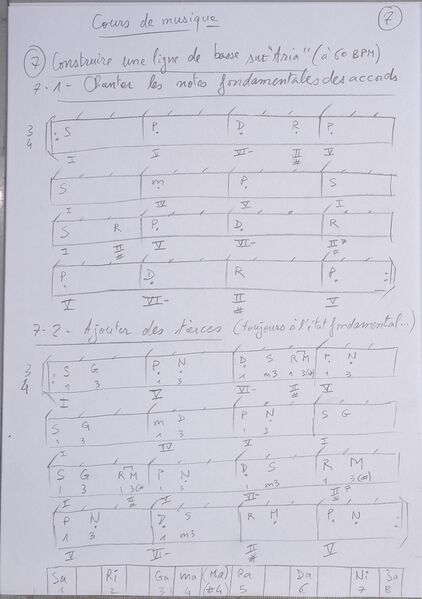 Cours de musique
7
7 Construire une ligne de basse sur "Aria" (à 60 BPM)
7.1- Chanter les notes fondamentales des accords
3 4 S P D R P
I V VI- II# V
S m P S
I IV V I
S R P D R
I II# V VI- II#7
P D R P
V VI- II# V
7-2- Ajouter des tierces (toujours à l'état fondamental...)
3 4 S G P N D S R M P N
1 3 1 3 1 m3 1 3(#) 1 3
I V VI- II# V
S G m D P N S G
1 3 1 3 1 3
I IV V I
S G R M P N D S R M
1 3 1 3(# 1 3 1 m3 1 3(#)
I II# V VI- II#7
P N D S R M P N
1 3 1 m3
V VI- II# V
Sa Ri Ga ma (Ma) Pa Da Ni Sa
1 2 3 4 #4 5 6 7 8